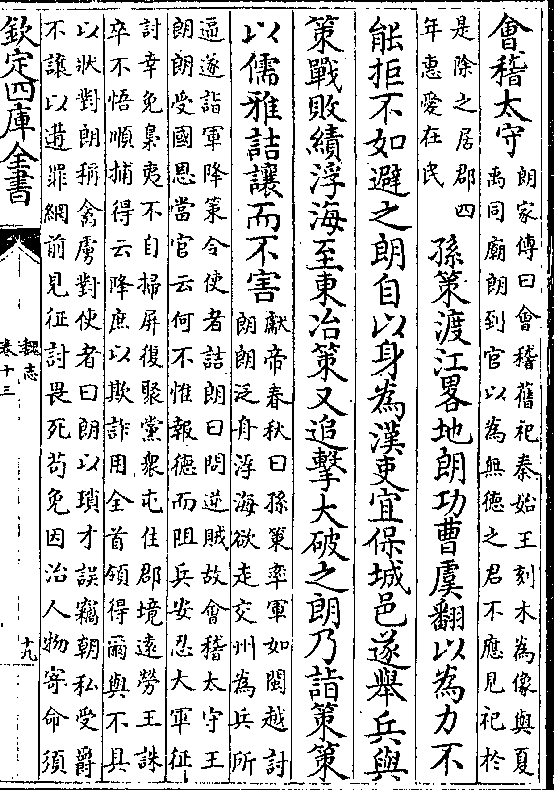 會稽太守
朗家傳曰會稽舊祀秦始王刻木為像與夏
禹同廟朗到官以為無德之君不應見祀於
是除之居郡四
年惠愛在民
孫策渡江畧地朗功曹虞翻以為力不
能拒不如避之朗自以身為漢吏宜保城邑遂舉兵與
策戰敗績浮海至東冶策又追擊大破之朗乃詣策策
以儒雅詰讓而不害
獻帝春秋曰孫策率軍如閩越討
朗朗泛舟浮海欲走交州為兵所
逼遂詣軍降策令使者詰朗曰問逆賊故會稽太守王
朗朗受國恩當官云何不惟報德而阻兵安忍大軍征
討幸免梟夷不自掃屏復聚黨衆屯住郡境遠勞王誅
卒不悟順捕得云降庶以欺詐用全首領得爾與不具
以狀對朗稱禽虜對使者曰朗以瑣才誤竊朝私受爵
不讓以遘罪網前見征討畏死苟免因治人物寄命須
欽定四庫全書
魏志
卷十三
十九